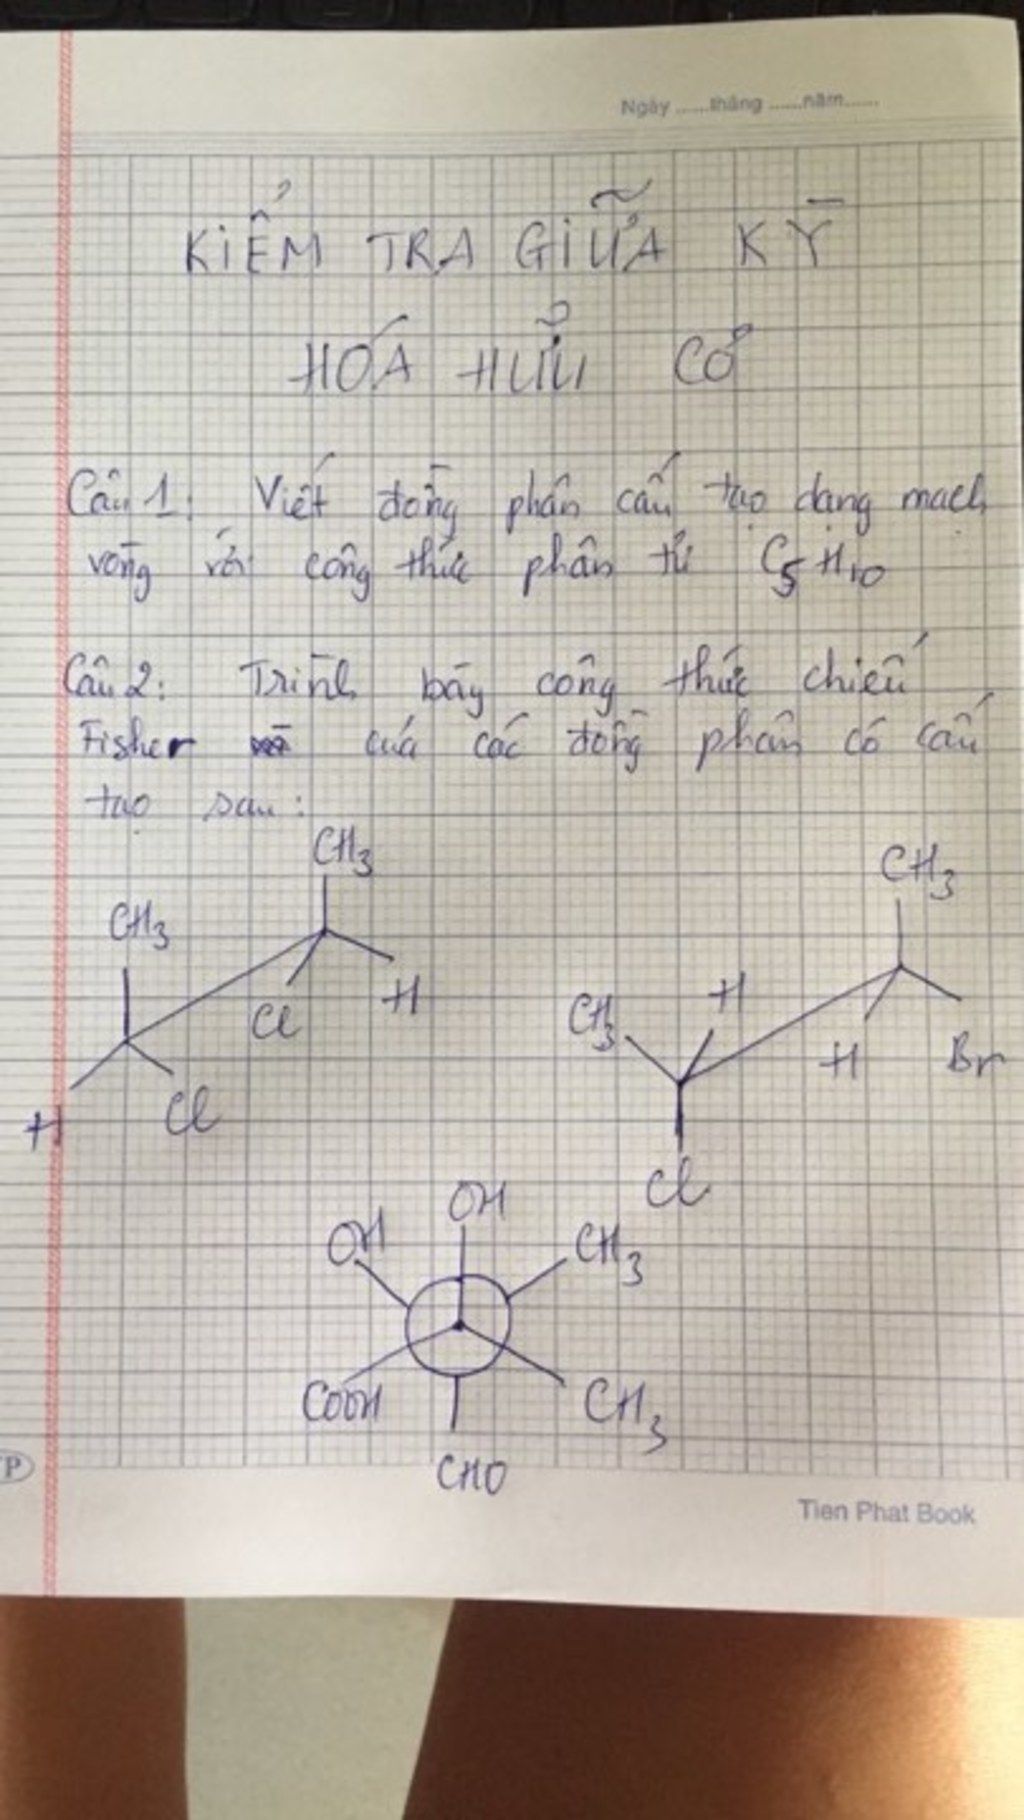 Ngày ......tháng ......năm......
KIỂM TRA GIỮA KỲ
HÓA HỮU CƠ
Câu 1: Viết đồng phân cấu tạo dạng mạch
vòng với công thức phân tử C5H10
Câu 2: Trình bày công thức chiếu
Fisher của các đồng phân có cấu
tạo sau:
CH3
CH3
CH3
CH3
H
Cl
H
H
Br
H
Cl
Cl
OH
OH
CH3
COOH
CH3
CHO
TP
Tien Phat Book